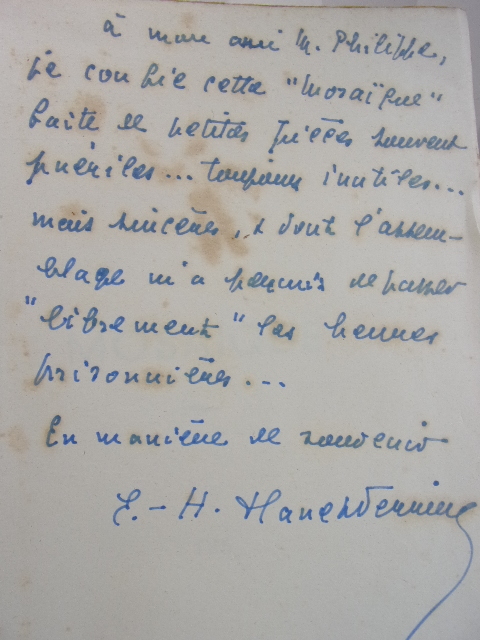 à mon ami M. Philippe,
je confie cette "Mosaïque"
faite de petites pièces souvent
puériles... toujours inutiles...
mais sincères, & dont l'assem-
blage m'a permis de passer
"librement" les heures
prisonnières...
En manière de souvenir
E.-H.